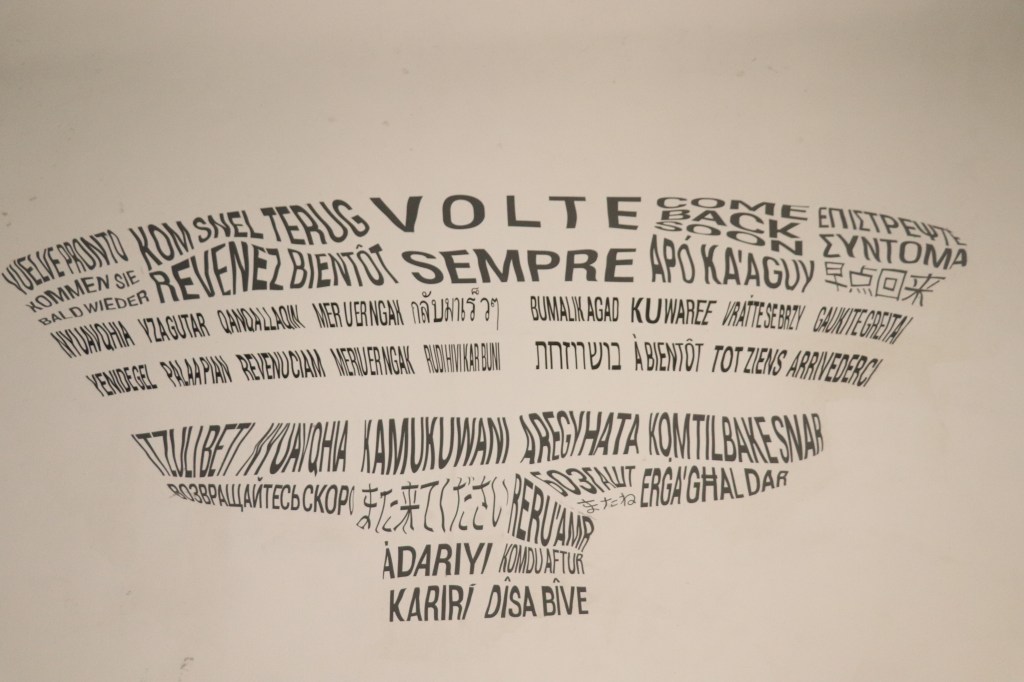 VUELVE PRONTO KOM SNEL TERUG VOLTE COME BACK SOON ΕΠΙΣΤΡΕΨΤΕ ΣΥΝΤΟΜΑ
KOMMEN SIE BALD WIEDER REVENEZ BIENTÔT SEMPRE APÓ KA'AGUY 早点回来
NYUAVQHIA VZAGUTAR QANQALLAQIK MERUERNGAK กลับมาเร็วๆ BUMALIK AGAD KUWAREE VRÁTTESEBRZY GAUKITEGREITAI
YENIDEGEL PALAAPIAN REVENUCIAM MERUERNGAK RUDIHIVIKARBUNI בושוזרחת À BIENTÔT TOT ZIENS ARRIVEDERCI
ITZULIBETI NYUAVQHIA KAMUKUWANI AREGYHATA KOMTILBAKESNAR
ВОЗВРАЩАЙТЕСЬ СКОРО また来てください RERU'AMR БОЗГАШТ またね ERGA'GĦAL DAR
ÀDARIYI KOMDU AFTUR
KARIRÍ DÎSA BÎVE